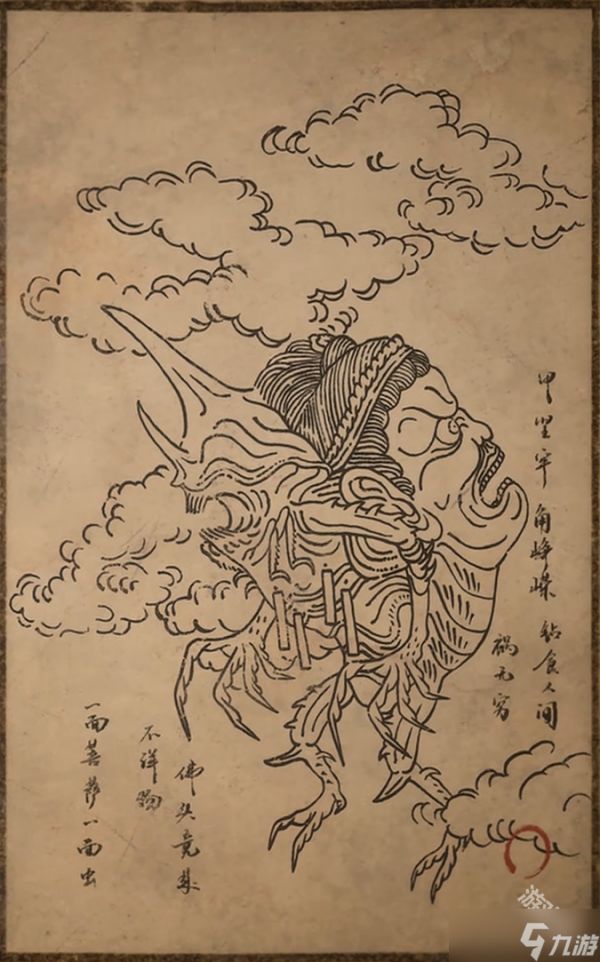 甲坚牢 角峥嵘 钻食人间
祸无穷
佛头竟集
不祥物
一面菩萨一面虫
九游